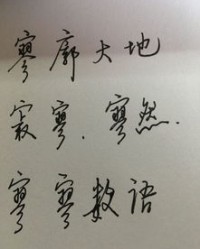 寥廓大地
寂寥.寥然.
寥寥数语